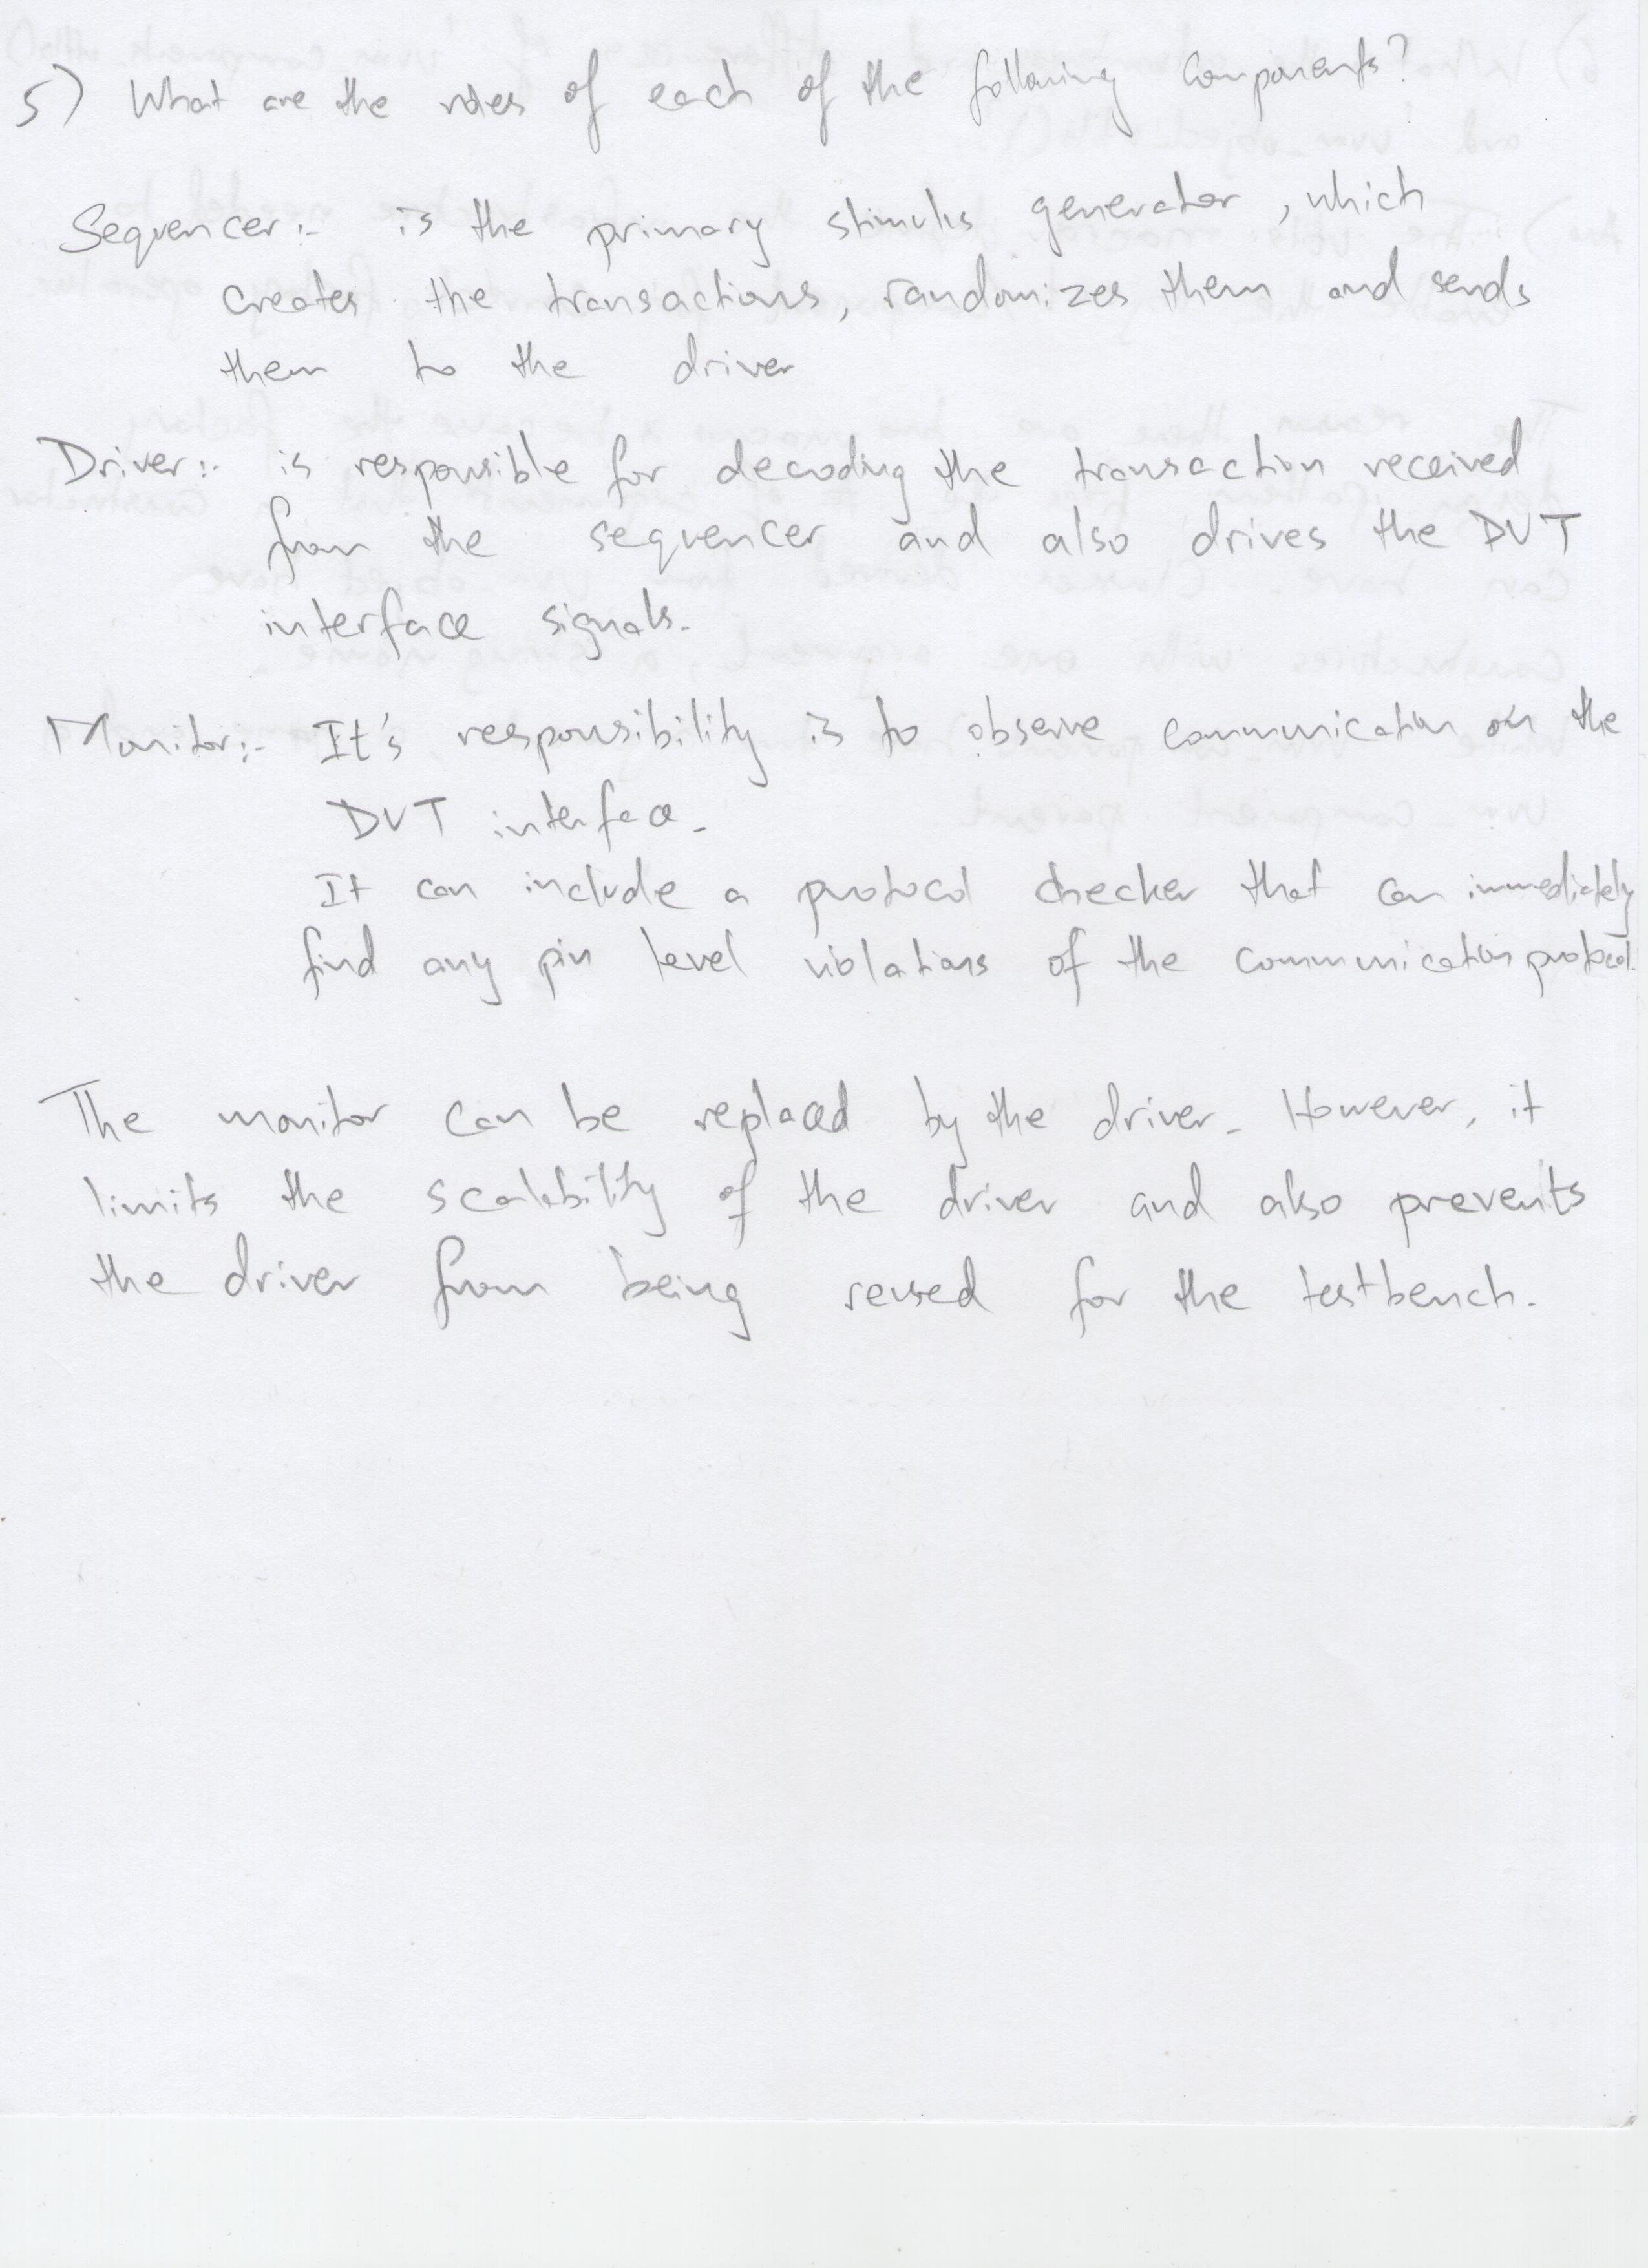 5) What are the roles of each of the following components?
Sequencer:- is the primary stimulus generator, which
creates the transactions, randomizes them and sends
them to the driver
Driver:- is responsible for decoding the transaction received
from the sequencer and also drives the DUT
interface signals.
Monitor:- It's responsibility is to observe communication on the
DUT interface.
It can include a protocol checker that can immediately
find any pin level violations of the communication protocol.
The monitor can be replaced by the driver. However, it
limits the scalability of the driver and also prevents
the driver from being reused for the testbench.